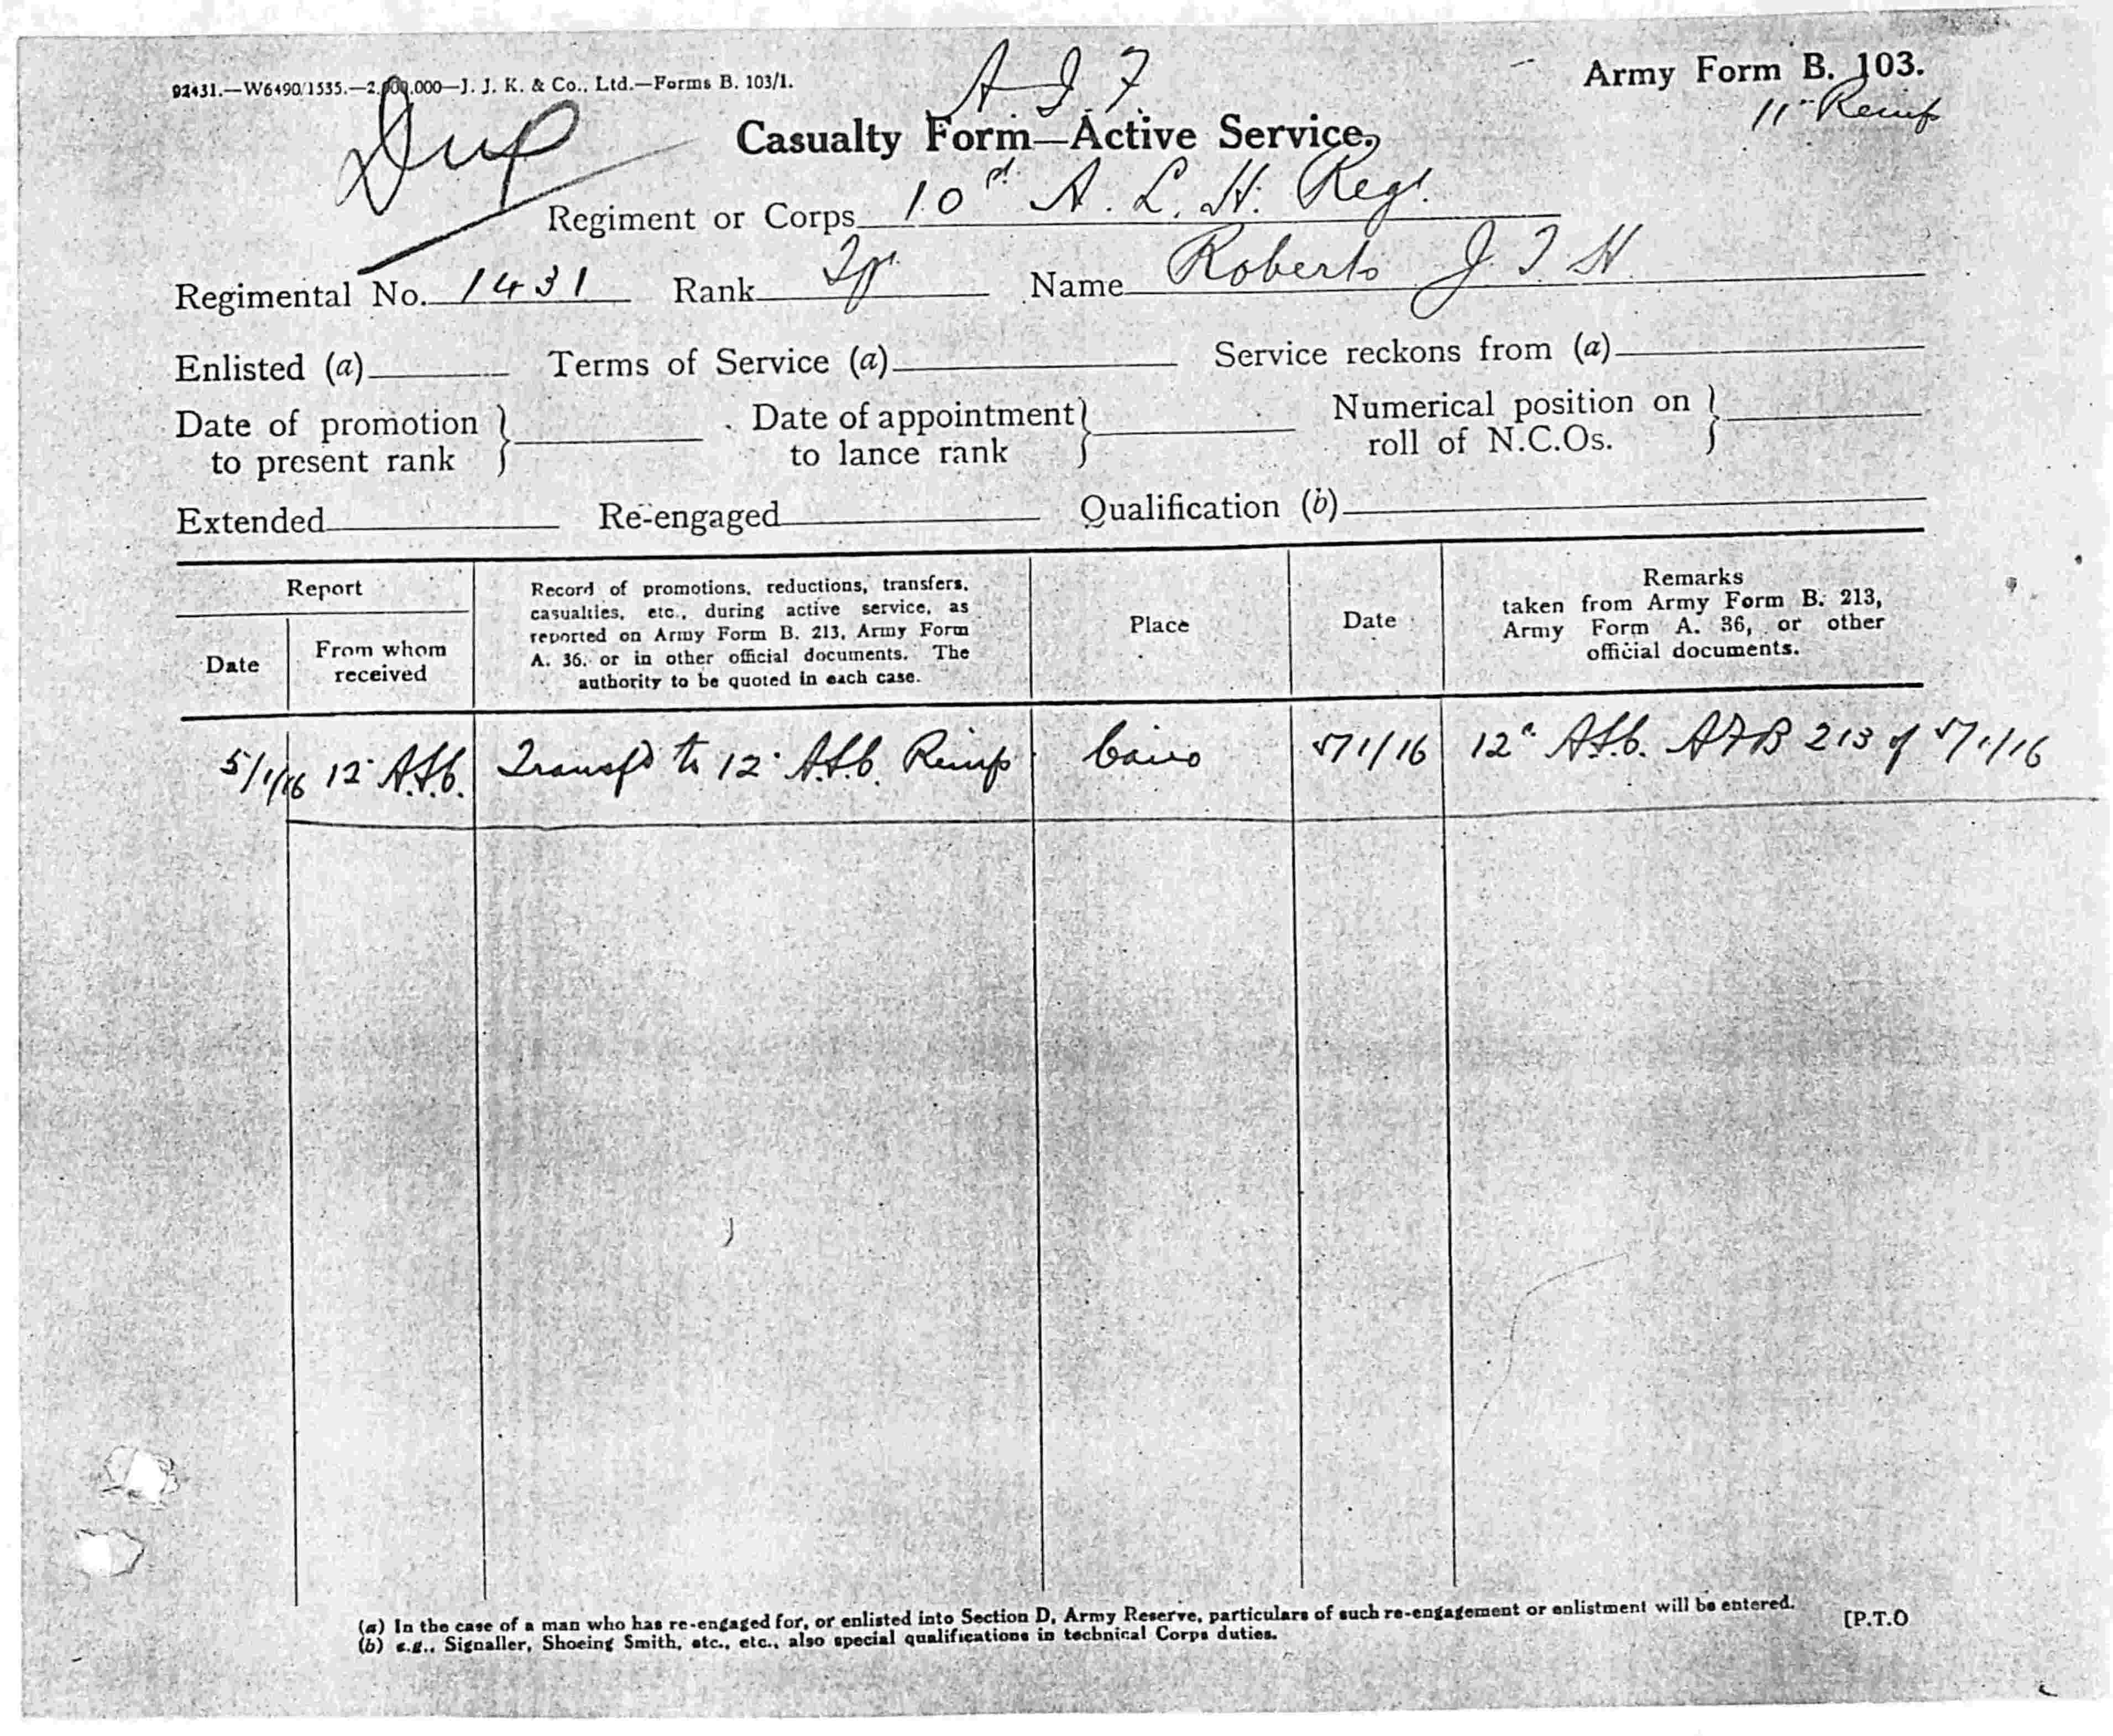 92431.—W6490/1535.—2,000,000—J. J. K. & Co., Ltd.—Forms B. 103/1.
A. I. F.
Army Form B. 103.
11" Reinf
Dup
Casualty Form—Active Service.
Regiment or Corps 10th A. L. H. Regt.
Regimental No. 1431 Rank Tpr. Name Roberts J. T. H.
Enlisted (a) Terms of Service (a) Service reckons from (a)
Date of promotion to present rank } Date of appointment to lance rank } Numerical position on roll of N.C.Os. }
Extended Re-engaged Qualification (b)
Report
Date
From whom received
Record of promotions, reductions, transfers,
casualties, etc., during active service, as
reported on Army Form B. 213, Army Form
A. 36, or in other official documents. The
authority to be quoted in each case.
Place
Date
Remarks
taken from Army Form B. 213,
Army Form A. 36, or other
official documents.
5/1/16 12" Transfd to 12" Reinf Cairo 5/1/16 12" AFB 213 of 5/1/16
(a) In the case of a man who has re-engaged for, or enlisted into Section D, Army Reserve, particulars of such re-engagement or enlistment will be entered.
(b) e.g., Signaller, Shoeing Smith, etc., etc., also special qualifications in technical Corps duties.
[P.T.O